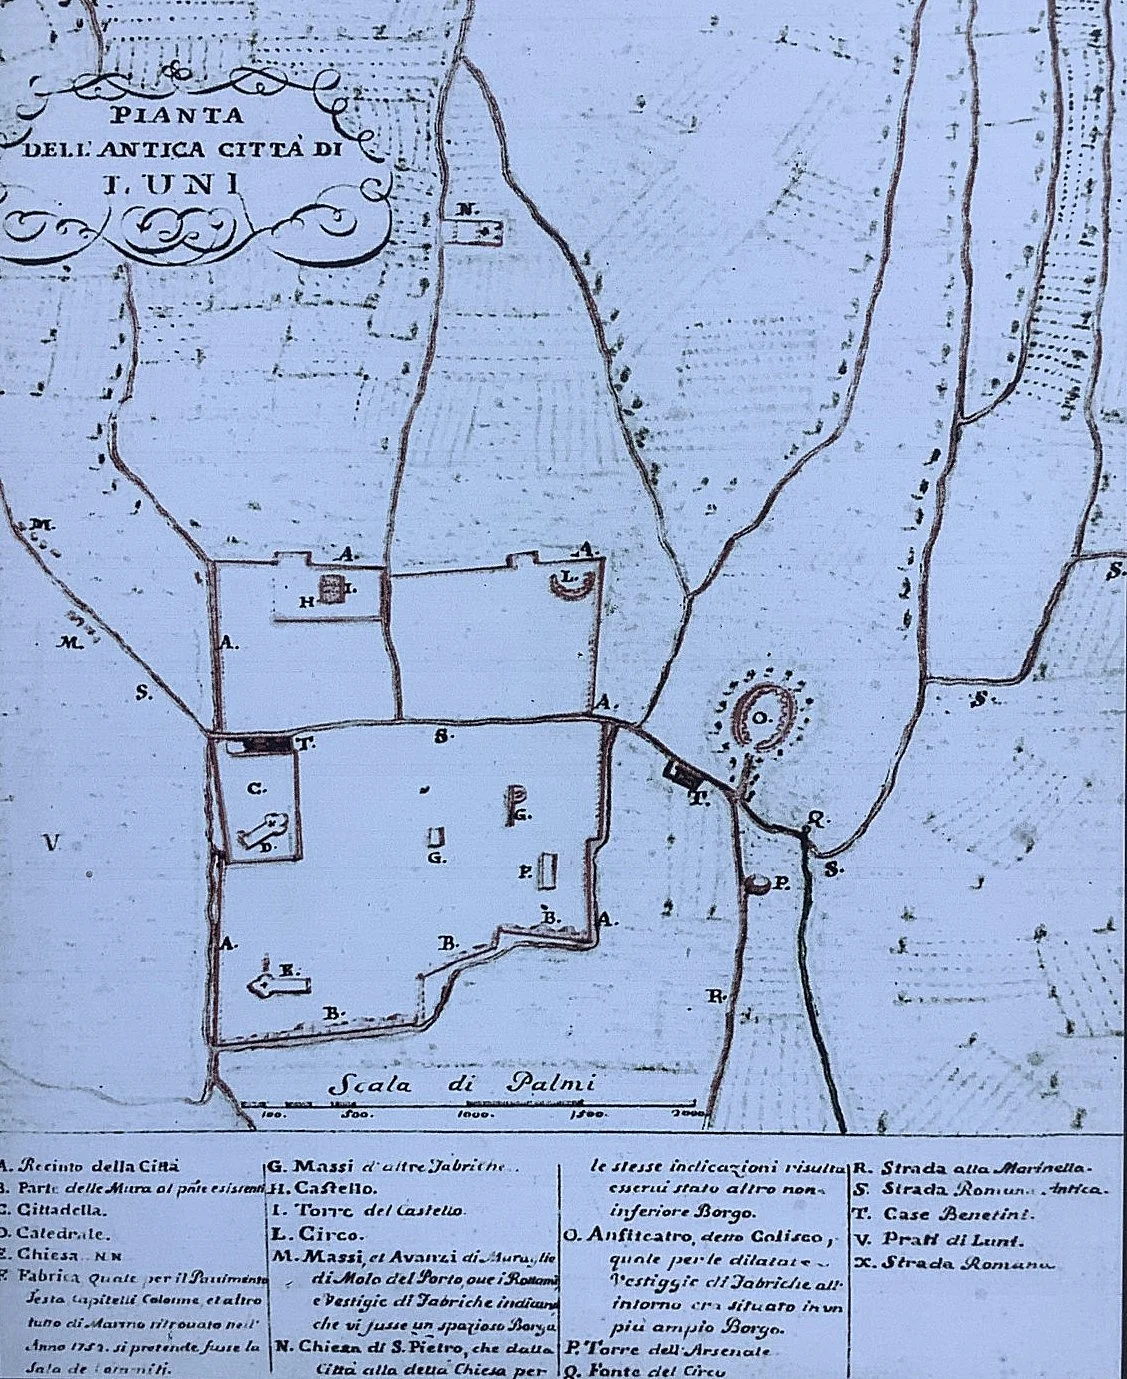 PIANTA
DELL'ANTICA CITTÀ DI
LUNI
N.
M.
A.
A.
L.
I.
H
M.
A.
S.
S.
S.
A.
O.
S.
T.
C.
T.
G.
Q.
V
D.
G.
F.
S.
P.
B.
A.
B.
A.
E.
R.
B.
Scala di Palmi
100. 500. 1000. 1500. 2000
A. Recinto della Città
B. Parte delle Mura al pnte esistenti
C. Cittadella.
D. Catedrale.
E. Chiesa N.N
F. Fabrica quale per il Pauimento
Testa Capitelli Colonne, et altro
tutto di Marmo ritrouato nell'
Anno 1752. si pretende fusse la
Sala de
G. Massi d'altre Fabriche.
H. Castello.
I. Torre del Castello.
L. Circo.
M. Massi, et Avanzi di
di Molo del Porto, oue i Rottami
e Vestigie di Fabriche indicano
che vi fusse un spazioso Borgo
N. Chiesa di S. Pietro, che dalla
Città alla detta Chiesa per
le stesse indicazioni risulta
esserui stato altro non
inferiore Borgo.
O. Anfiteatro, detto Coliseo,
quale per le dilatate
Vestiggie di Fabriche all'
intorno era situato in un
più ampio Borgo.
P. Torre dell'Arsenale
Q. Fonte del Circo
R. Strada alla Marinella.
S. Strada Romana Antica.
T. Case Benetini.
V. Prati di Luni.
X. Strada Romana